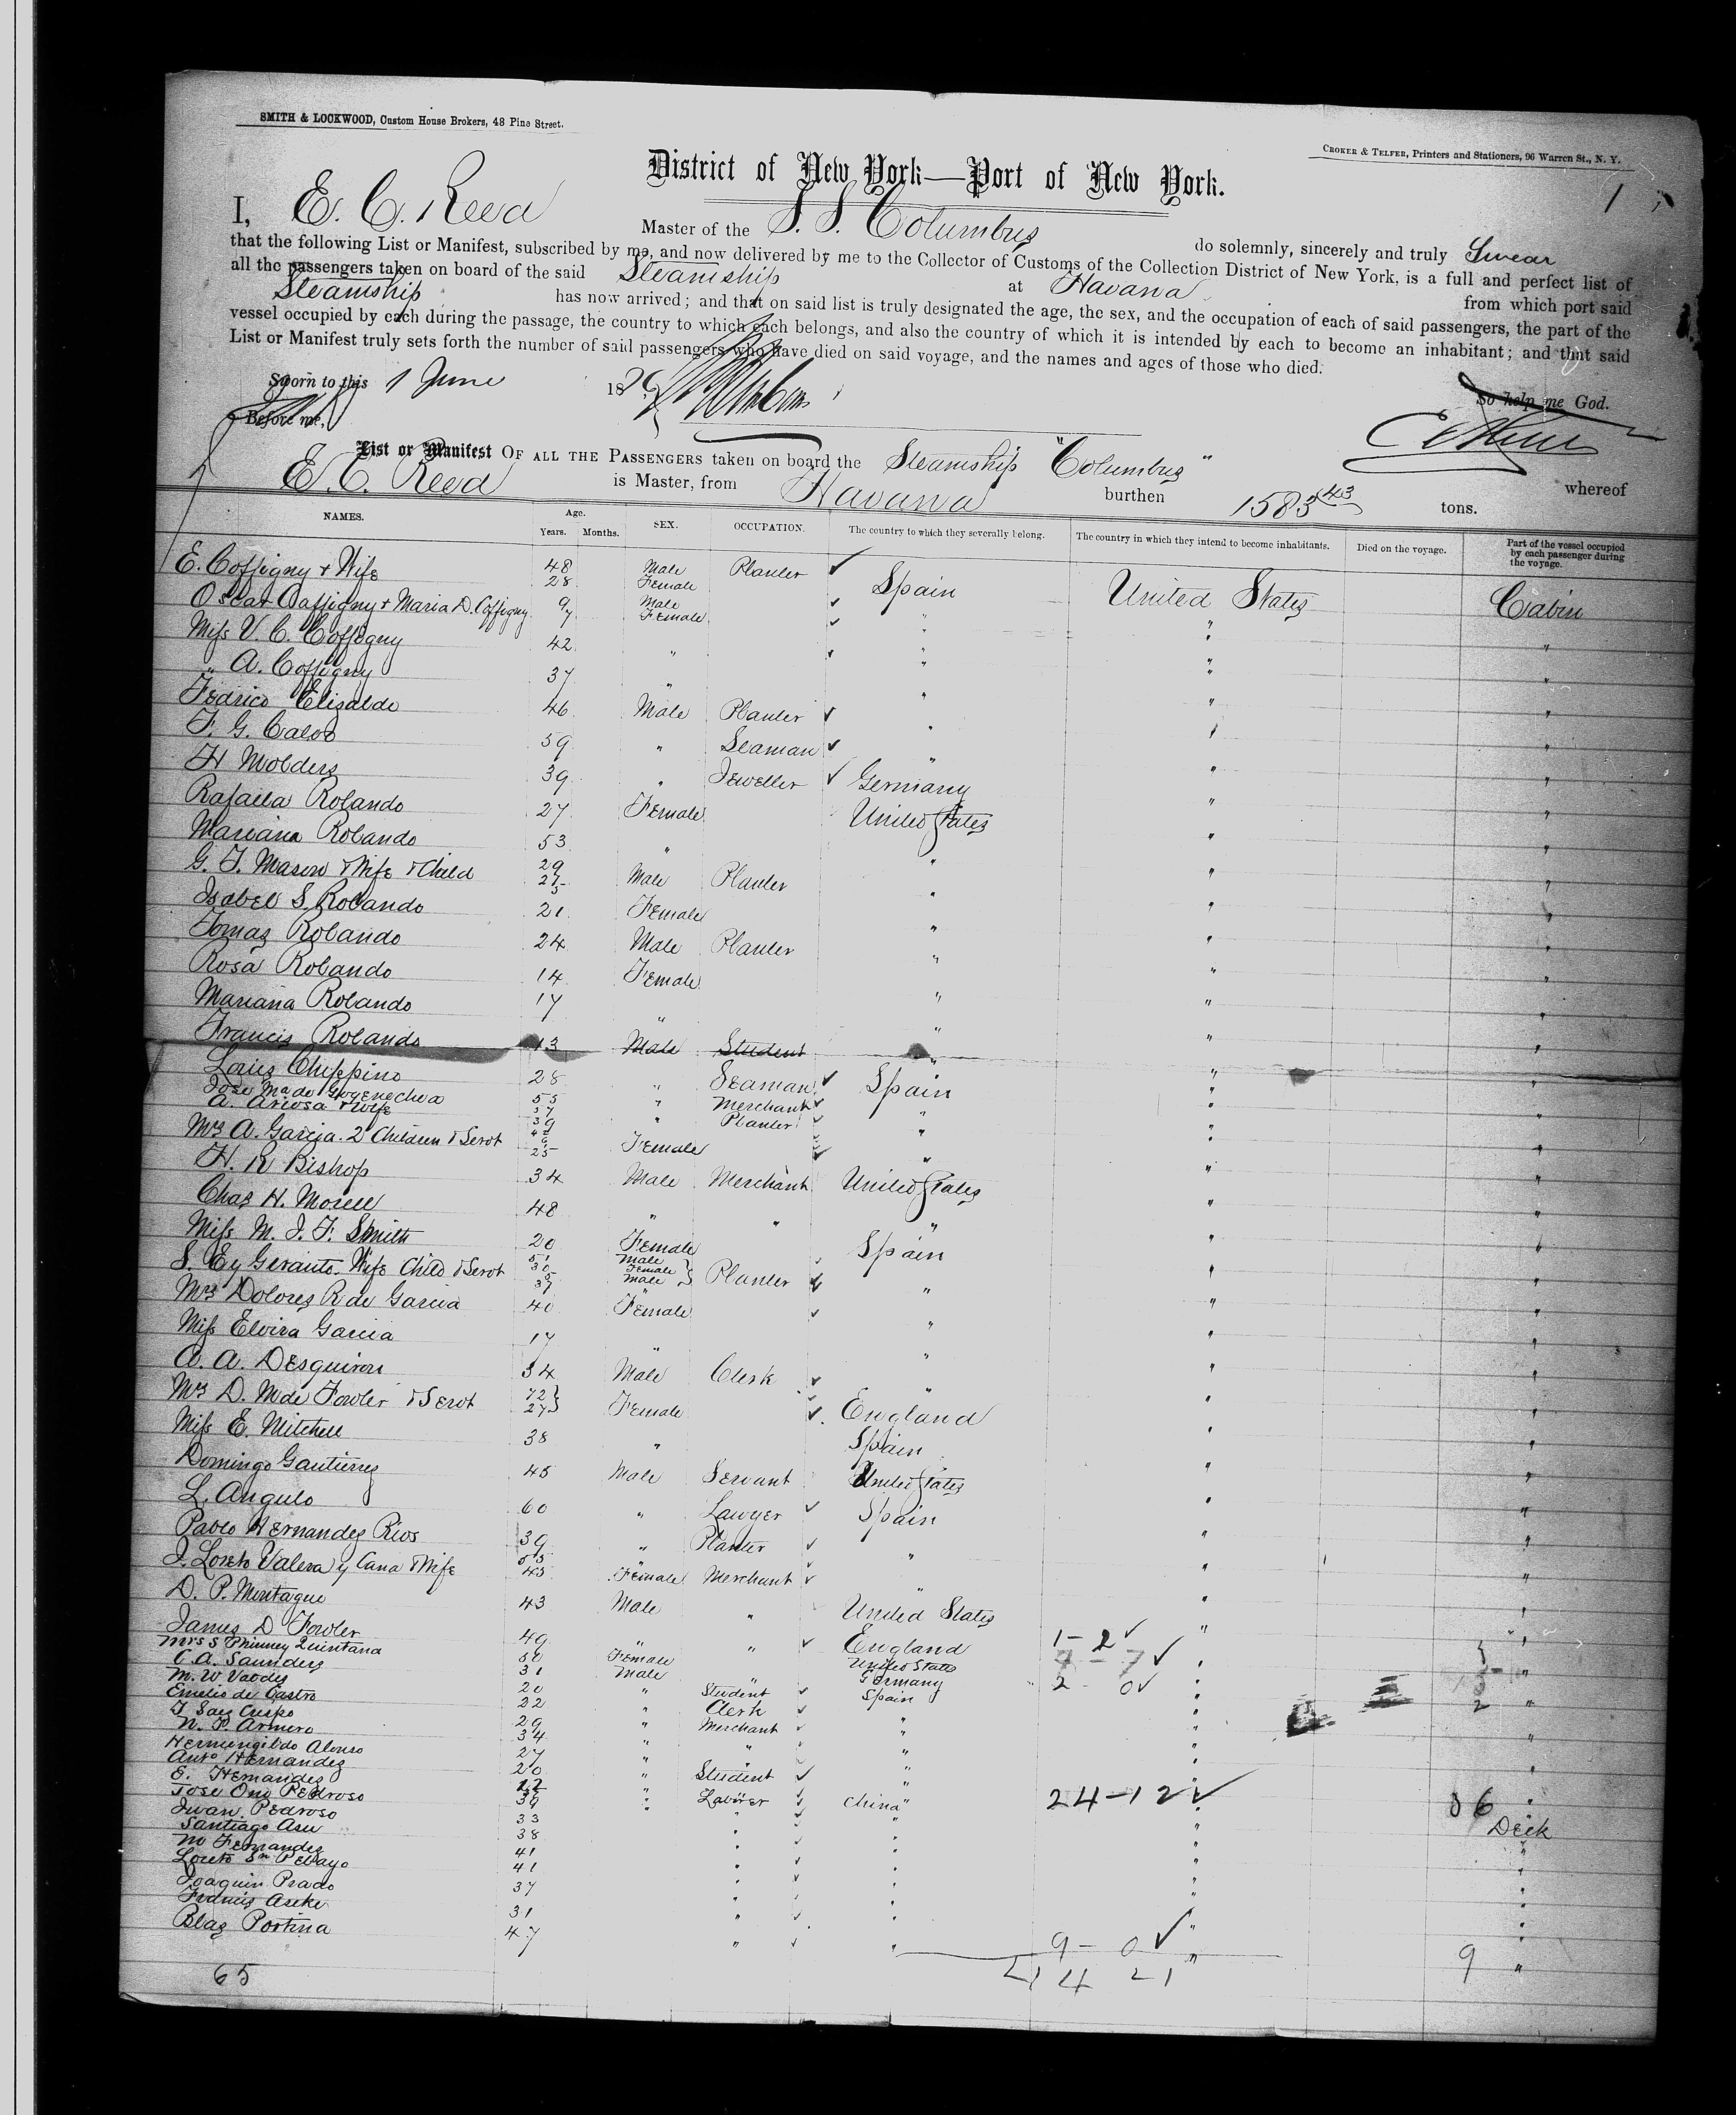 SMITH & LOCKWOOD, Custom House Brokers, 48 Pine Street.
CROKER & TELFER, Printers and Stationers, 96 Warren St., N. Y.
District of New York—Port of New York.
1
I, E. C. Reed Master of the S. S. Columbus do solemnly, sincerely and truly Swear
that the following List or Manifest, subscribed by me, and now delivered by me to the Collector of Customs of the Collection District of New York, is a full and perfect list of
all the passengers taken on board of the said Steamship at Havana from which port said
Steamship has now arrived; and that on said list is truly designated the age, the sex, and the occupation of each of said passengers, the part of the
vessel occupied by each during the passage, the country to which each belongs, and also the country of which it is intended by each to become an inhabitant; and that said
List or Manifest truly sets forth the number of said passengers who have died on said voyage, and the names and ages of those who died.
Sworn to this 1 June 18
So help me God.
Before me,
List or Manifest OF ALL THE PASSENGERS taken on board the Steamship "Columbus" whereof
E. C. Reed is Master, from Havana burthen 1583 43 tons.
NAMES. Age. Years. Months. SEX. OCCUPATION. The country to which they severally belong. The country in which they intend to become inhabitants. Died on the voyage. Part of the vessel occupied by each passenger during the voyage.
E. Coffigny & Wife 48 28 Male Female Planter Spain United States Cabin
Oscar Coffigny & Maria D. Coffigny 9 7 Male Female " "
Miss V. C. Coffigny 42 " " " "
" A. Coffigny 37 " " " "
Federico Elizalde 46 Male Planter " " "
F. G. Calvo 39 " Seaman " " "
H Molders 39 " Jeweller Germany " "
Rafaela Rolando 27 Female United States " "
Mariana Rolando 53 " " " "
G. F. Mason & Wife & Child 29 27 5 Male Planter " " "
Isabel S. Rolando 21 Female " " "
Tomas Rolando 24 Male Planter " " "
Rosa Rolando 14 Female " " "
Mariana Rolando 17 " " " "
Francis Rolando 13 Male Student " " "
Louis Chippino 28 " Seaman Spain " "
Jose Ma de Goyenechea 55 " Merchant " " "
A. Ariosa & Wife 37 " Planter " "
Mrs A. Garcia. 2 Children & Servt 25 Female " " "
H. R Bishop 34 Male Merchant United States " "
Chas H. Morell 48 " " " " "
Miss M. J. F. Smith 20 Female Spain " "
Wife Child & Servt Male Female Male Planter " " "
Mrs Dolores R de Garcia 40 Female " " "
Miss Elvira Garcia 17 " " " "
A. A. Desquiron 34 Male Clerk " " "
Mrs D. M de Fowler & Servt 72 27 Female England " "
Miss E. Mitchell 38 " Spain " "
Domingo Gautierrez 45 Male Servant United States " "
L. Angulo 60 " Lawyer Spain " "
Pablo Hernandez Rios 39 " Planter " " "
J. Loreto Valera y Cana & Wife 55 45 " Female Merchant " " "
D. P. Montague 43 Male " United States " "
James D Fowler 49 " " England 1-2 " "
Mrs S Phinney Quintana 50 Female United States 7-7
C. A. Saunders 31 Male " Germany " "
M. W Valdes 20 " Student Spain 2 0 "
Emelio de Castro 22 " Clerk " " 2 "
29 " Merchant " "
N. P. Armero 34 " " " " "
Hermingildo Alonso 27 " " " "
Anto Hernandez 20 " Student " "
E. Hernandez 12 " " " "
Jose Ono Pedroso 39 " Laborer China 24-12 " 36
Juan Pedroso 33 " " " " Deck
Santiago Asu 38 " " " "
M Fernandez 41 " " " "
Loreto Sn Pelayo 41 " " " "
Joaquin Prado 37 " " " "
Francis 31 " " " "
Blas Portina 47 " " 9-0 "
65 4 21 9 "